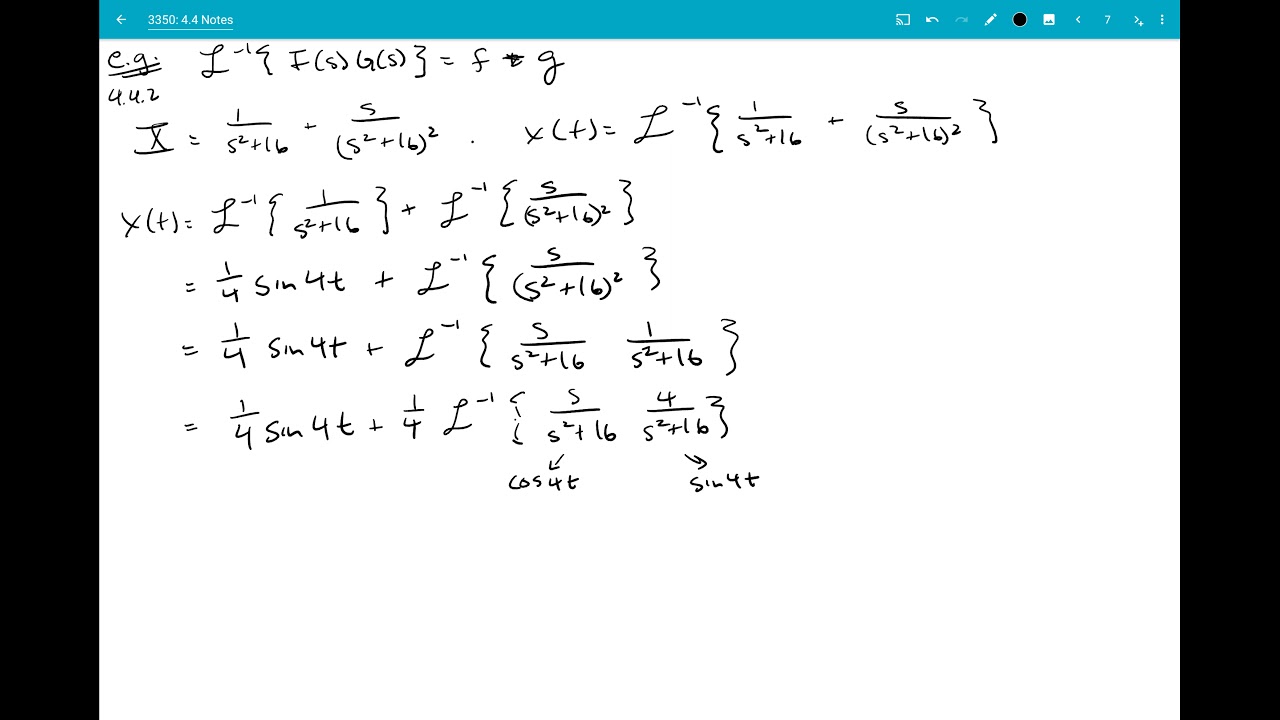 3350: 4.4 Notes
7
e.g. ℒ⁻¹{ F(s) G(s) } = f * g
4.4.2
X = 1/(s²+16) + s/(s²+16)² . x(t) = ℒ⁻¹{ 1/(s²+16) + s/(s²+16)² }
x(t) = ℒ⁻¹{ 1/(s²+16) } + ℒ⁻¹{ s/(s²+16)² }
= 1/4 sin 4t + ℒ⁻¹{ s/(s²+16)² }
= 1/4 sin 4t + ℒ⁻¹{ s/(s²+16) 1/(s²+16) }
= 1/4 sin 4t + 1/4 ℒ⁻¹{ s/(s²+16) 4/(s²+16) }
↙ ↘
cos 4t sin 4t